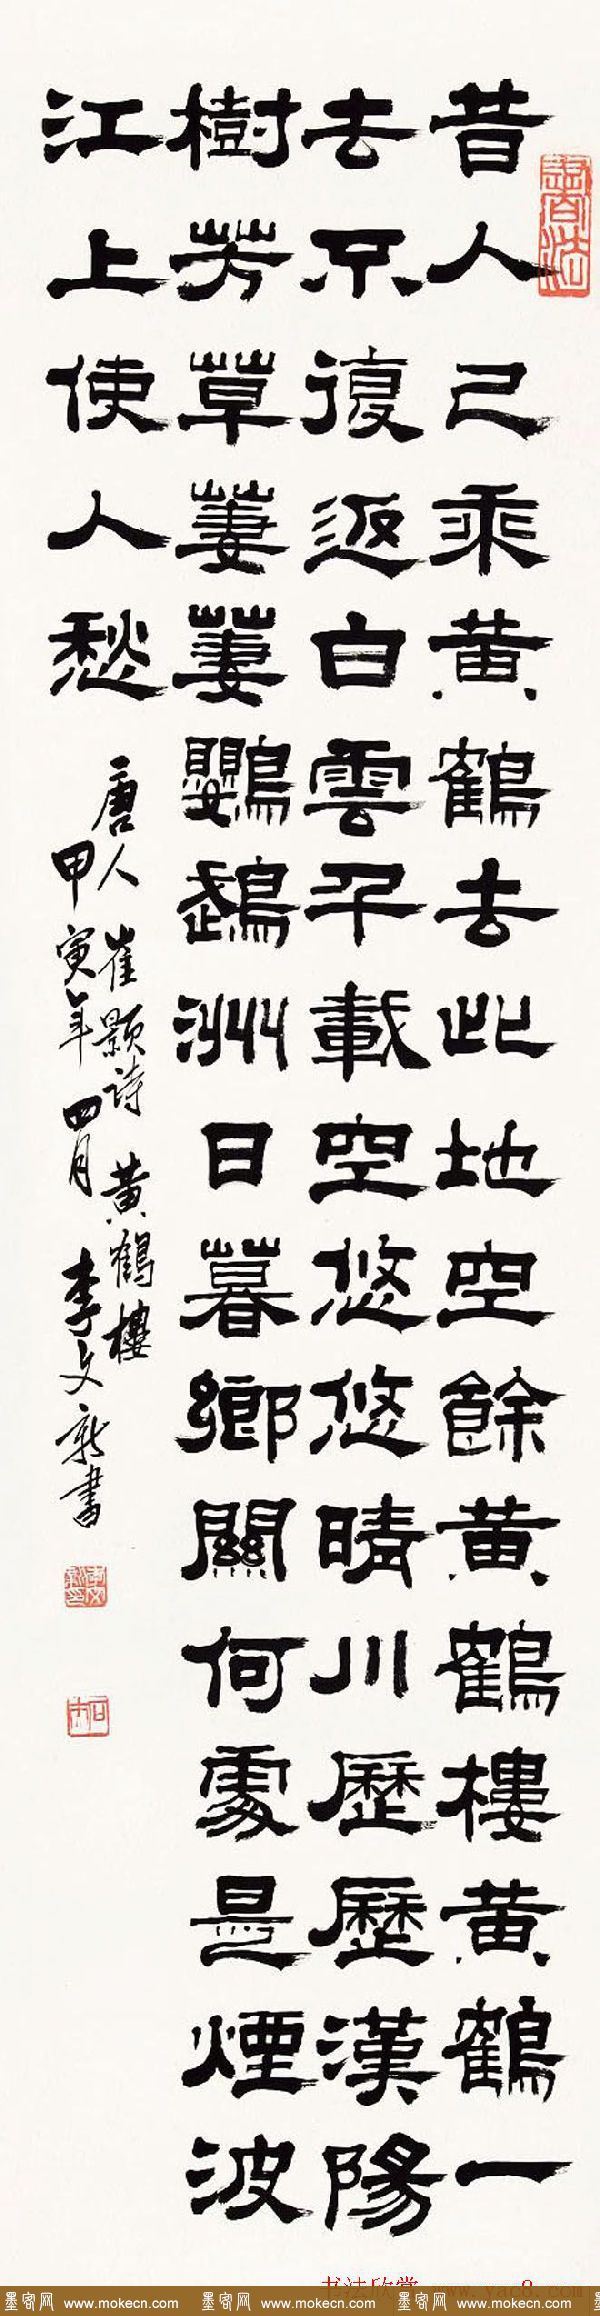 昔人已乘黄鶴去此地空餘黄鶴樓黄鶴一
去不復返白雲千載空悠悠晴川歷歷漢陽
樹芳草萋萋鸚鵡洲日暮鄉關何處是煙波
江上使人愁
唐人崔颢詩黄鶴樓
甲寅年四月李文新書
书法欣赏 www.yac8.com
墨客网 www.mokecn.com 墨客网 www.mokecn.com 墨客网 www.mokecn.com